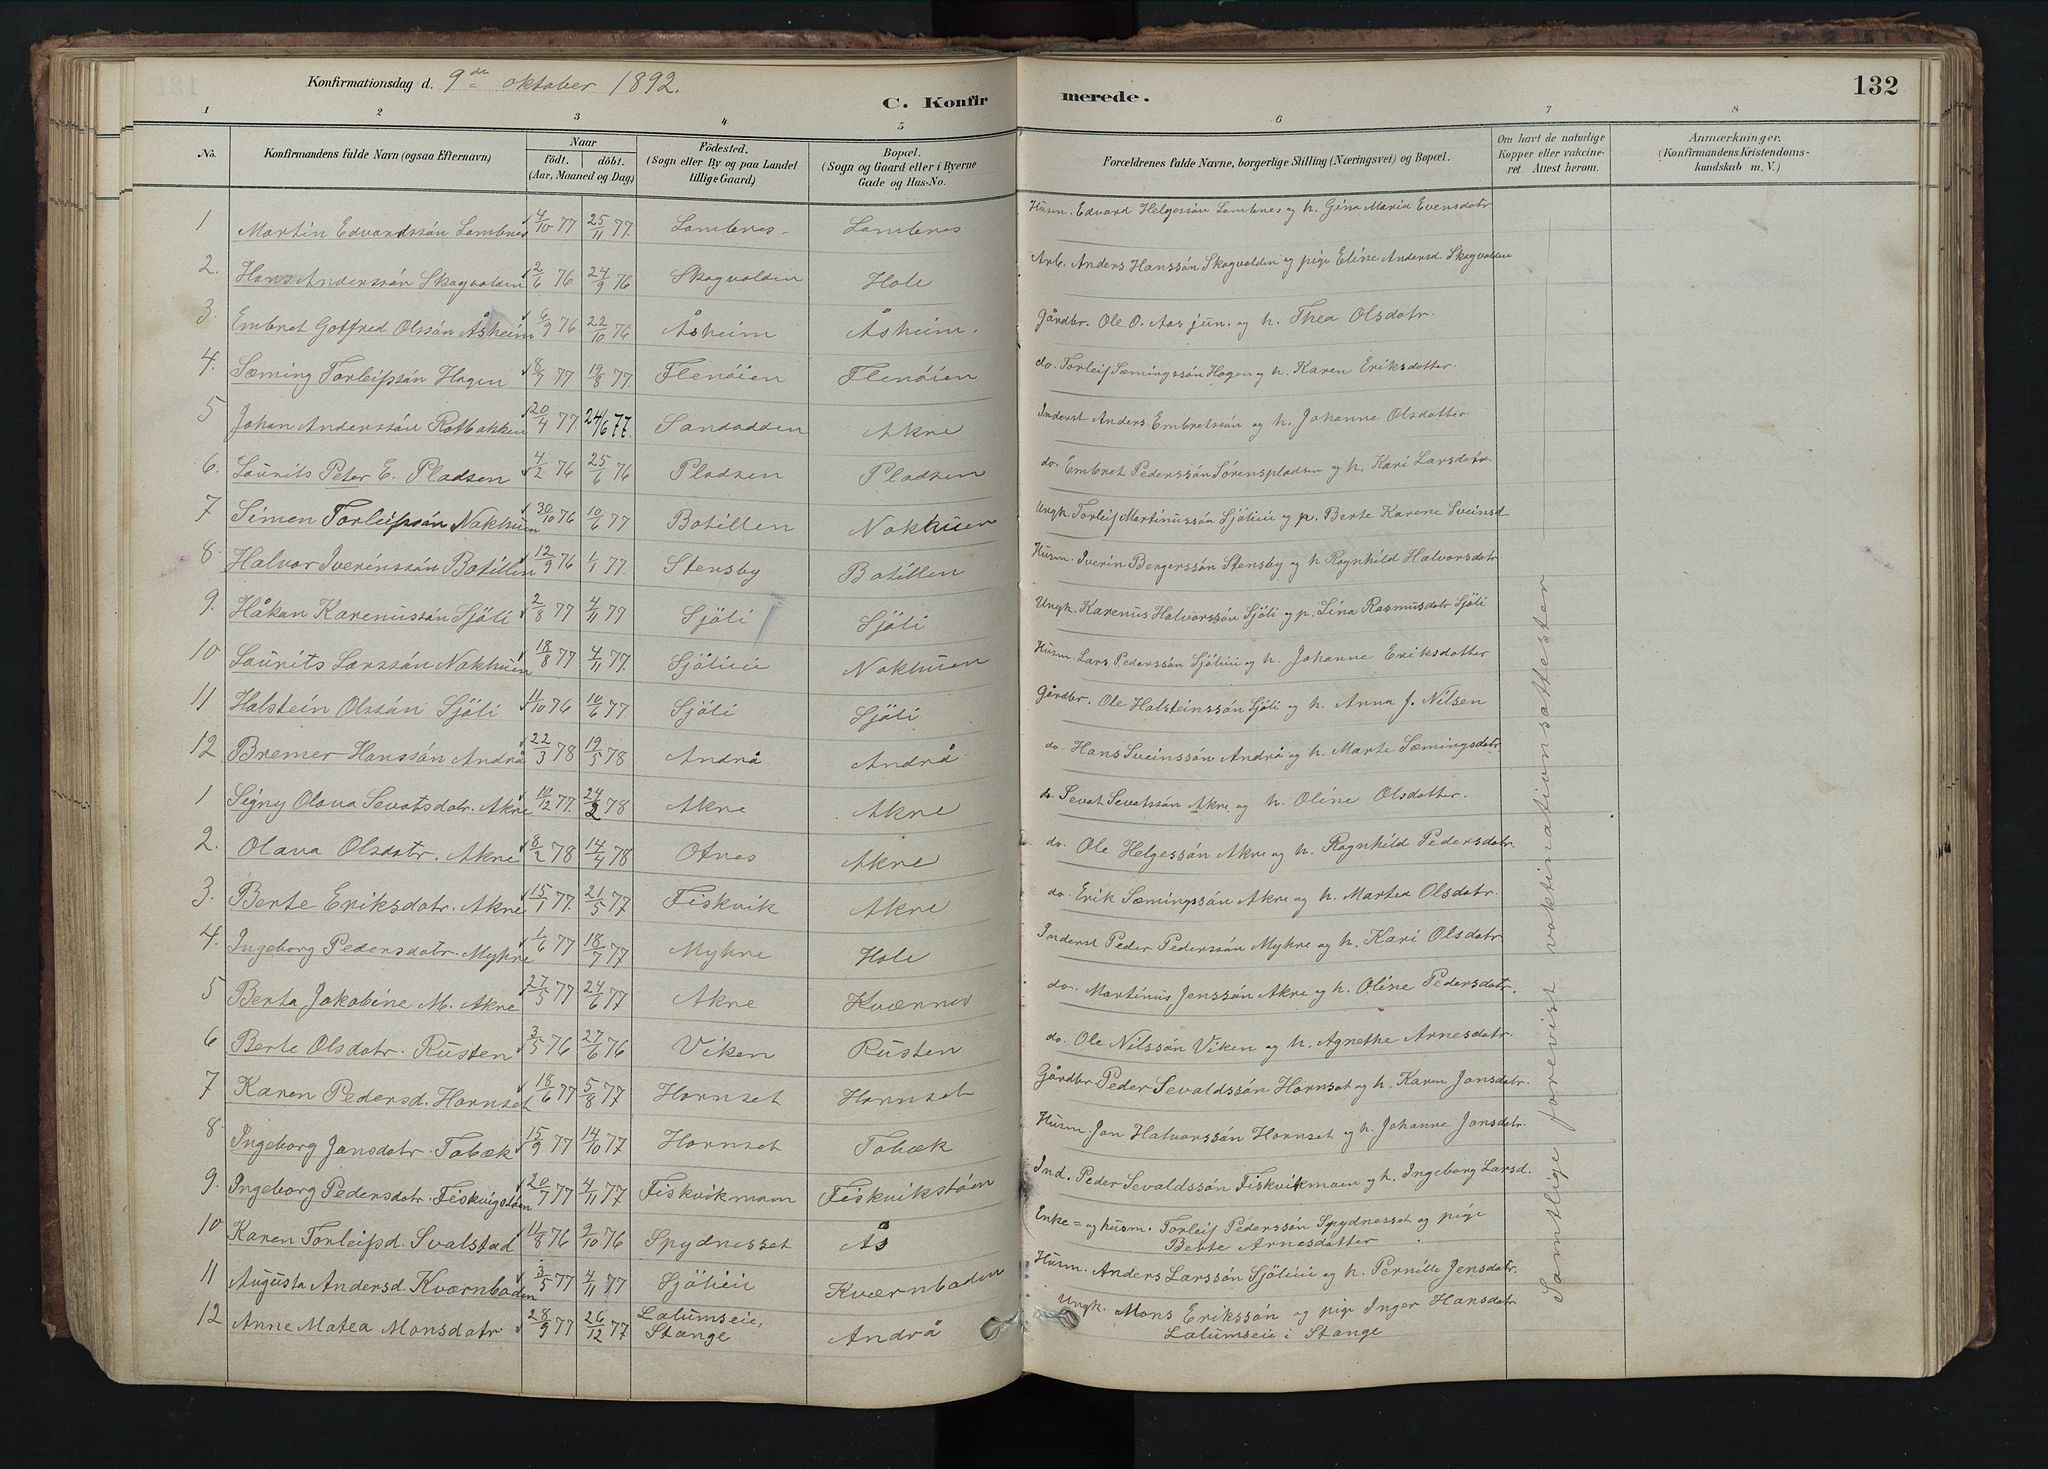 Konfirmationsdag d. 9de oktober 1892.
C. Konfirmerede.
132
1 2 3 4 5 6 7 8
No.
Konfirmandens fulde Navn (ogsaa Efternavn)
Naar
födt. döbt.
(Aar, Maaned og Dag)
Födested.
(Sogn eller By og paa Landet tillige Gaard)
Bopæl.
(Sogn og Gaard eller i Byerne Gade og Hus-No.
Forældrenes fulde Navne, borgerlige Stilling (Næringsvei) og Bopæl.
Om havt de naturlige Kopper eller vakcineret. Attest herom.
Anmærkninger.
(Konfirmandens Kristendomskundskab m. V.)
1 Martin Edvardssön Lombnes 4/10 77 25/11 77. Lombnes Lombnes Husm. Edvard Helgessön Lombnes og h. Gina Maria Evensdatr
2. Hans Anderssön Skogvolden 2/6 76 24/9 76 Skogvolden Hole Arb. Anders Hanssön Skogvolden og pige Eline Andersd. Skogvolden
3. Embret Gotfred Olssön Åsheim 6/9 76 22/10 76 Åsheim Åsheim. Gårdbr. Ole O. Aas jun. og h. Thea Olsdatr.
4. Sæming Torleifssön Hagen 8/7 77 19/8 77. Flenöien Flenöien do. Torleif Sæmingssön Hagen og h. Karen Eriksdatter.
5 Johan Anderssön Rotbakken 20/4 77. 24/6 77. Sandodden Akre Inderst Anders Embretssön og h. Johanne Olsdatter
6. Laurits Peter E. Pladsen 4/2 76 25/6 76 Pladsen Pladsen do. Embret Pederssön Sörenspladsen og h. Kari Larsdatr.
7 Simen Torleifssön Nakhuen 30/10 76 10/6 77 Botillen Nakhuen Ungk. Torleif Martinussön Sjöliiii og p. Berte Karene Sveinsd
8. Halvor Iverinssön Botillen 12/9 76 1/1 77. Stensby Botillen Husm. Iverin Bergerssön Stensby og h Ragnhild Halvorsdatr
9. Håkan Karenussön Sjöli 2/8 77 4/11 77 Sjöli Sjöli Ungk. Karenus Halvorssön Sjöli og p. Lina Rasmusdatr Sjöli
10 Laurits Larssön Nakhuen 18/8 77 4/11 77. Sjöliiii Nakhuen Husm. Lars Pederssön Sjöliiii og h. Johanne Eriksdatter
11 Halstein Olssön Sjöli 11/10 76 10/6 77. Sjöli Sjöli Gårdbr. Ole Halsteinssön Sjöli og h. Anna J. Nilsen
12 Bremer Hanssön Andrå 22/3 78 19/5 78 Andrå Andrå do. Hans Sveinssön Andrå og h. Marte Sæmingsdatr
1 Signy Olava Sevatsdatr. Akre 10/12 77. 24/2 78 Akre Akre do Sevat Sevatssön Akre og h. Oline Olsdatter.
2. Olava Olsdatr. Akre 8/2 78 14/4 78 Otnes Akre do. Ole Helgessön Akre og h. Ragnhild Pedersdatr.
3. Berte Eriksdatr. Akre 15/1 77. 21/5 77 Fiskvik Akre do. Erik Sæmingssön Akre og h. Martea Olsdatr.
4. Ingeborg Pedersdatr. Myhre 1/6 77 18/7 77 Myhre Hole Inderst Peder Pederssön Myhre og h. Kari Olsdatr
5 Berta Jakobine M. Akre 27/5 77 24/6 77 Akre Kværnes do. Martinus Jenssön Akre og h. Oline Pedersdatr.
6 Berte Olsdatr. Rusten 3/5 76 27/6 76 Viken Rusten do. Ole Nilssön Viken og h. Agnethe Arnesdatr.
7 Karen Pedersd. Hornset 18/6 77 5/8 77 Hornset Hornset Gårdbr Peder Sevaldssön Hornset og h. Karen Jonsdatr.
8 Ingeborg Jonsdatr. Tobæk 15/9 77 14/10 77 Hornset Tobæk Husm. Jon Halvorssön Hornset og h. Johanne Jonsdatr.
9. Ingeborg Pedersdatr. Fiskvigstöen 20/7 77 4/11 77 Fiskvikmoen Fiskvikstöen Ind. Peder Sevaldssön Fiskvikmoen og h. Ingeborg Larsd.
10 Karen Torleifsd. Svalstad 11/8 76 9/10 76 Spydnesset Ås Enke= og husm. Torleif Pederssön Spydnesset og pige
Berte Arnesdatter
11 Augusta Andersd. Kværnboden 3/5 77 4/11 77 Sjöliiii Kværnboden Husm. Anders Larssön Sjöliiii og h. Pernille Jensdatr.
12 Anne Matea Monsdatr. 28/9 77 26/12 77 Lalumseie, Stange Andrå Ungk. Mons Erikssön og pige Inger Hansdatr
Lalumseie i Stange
Samtlige forevist vaktinationsattester